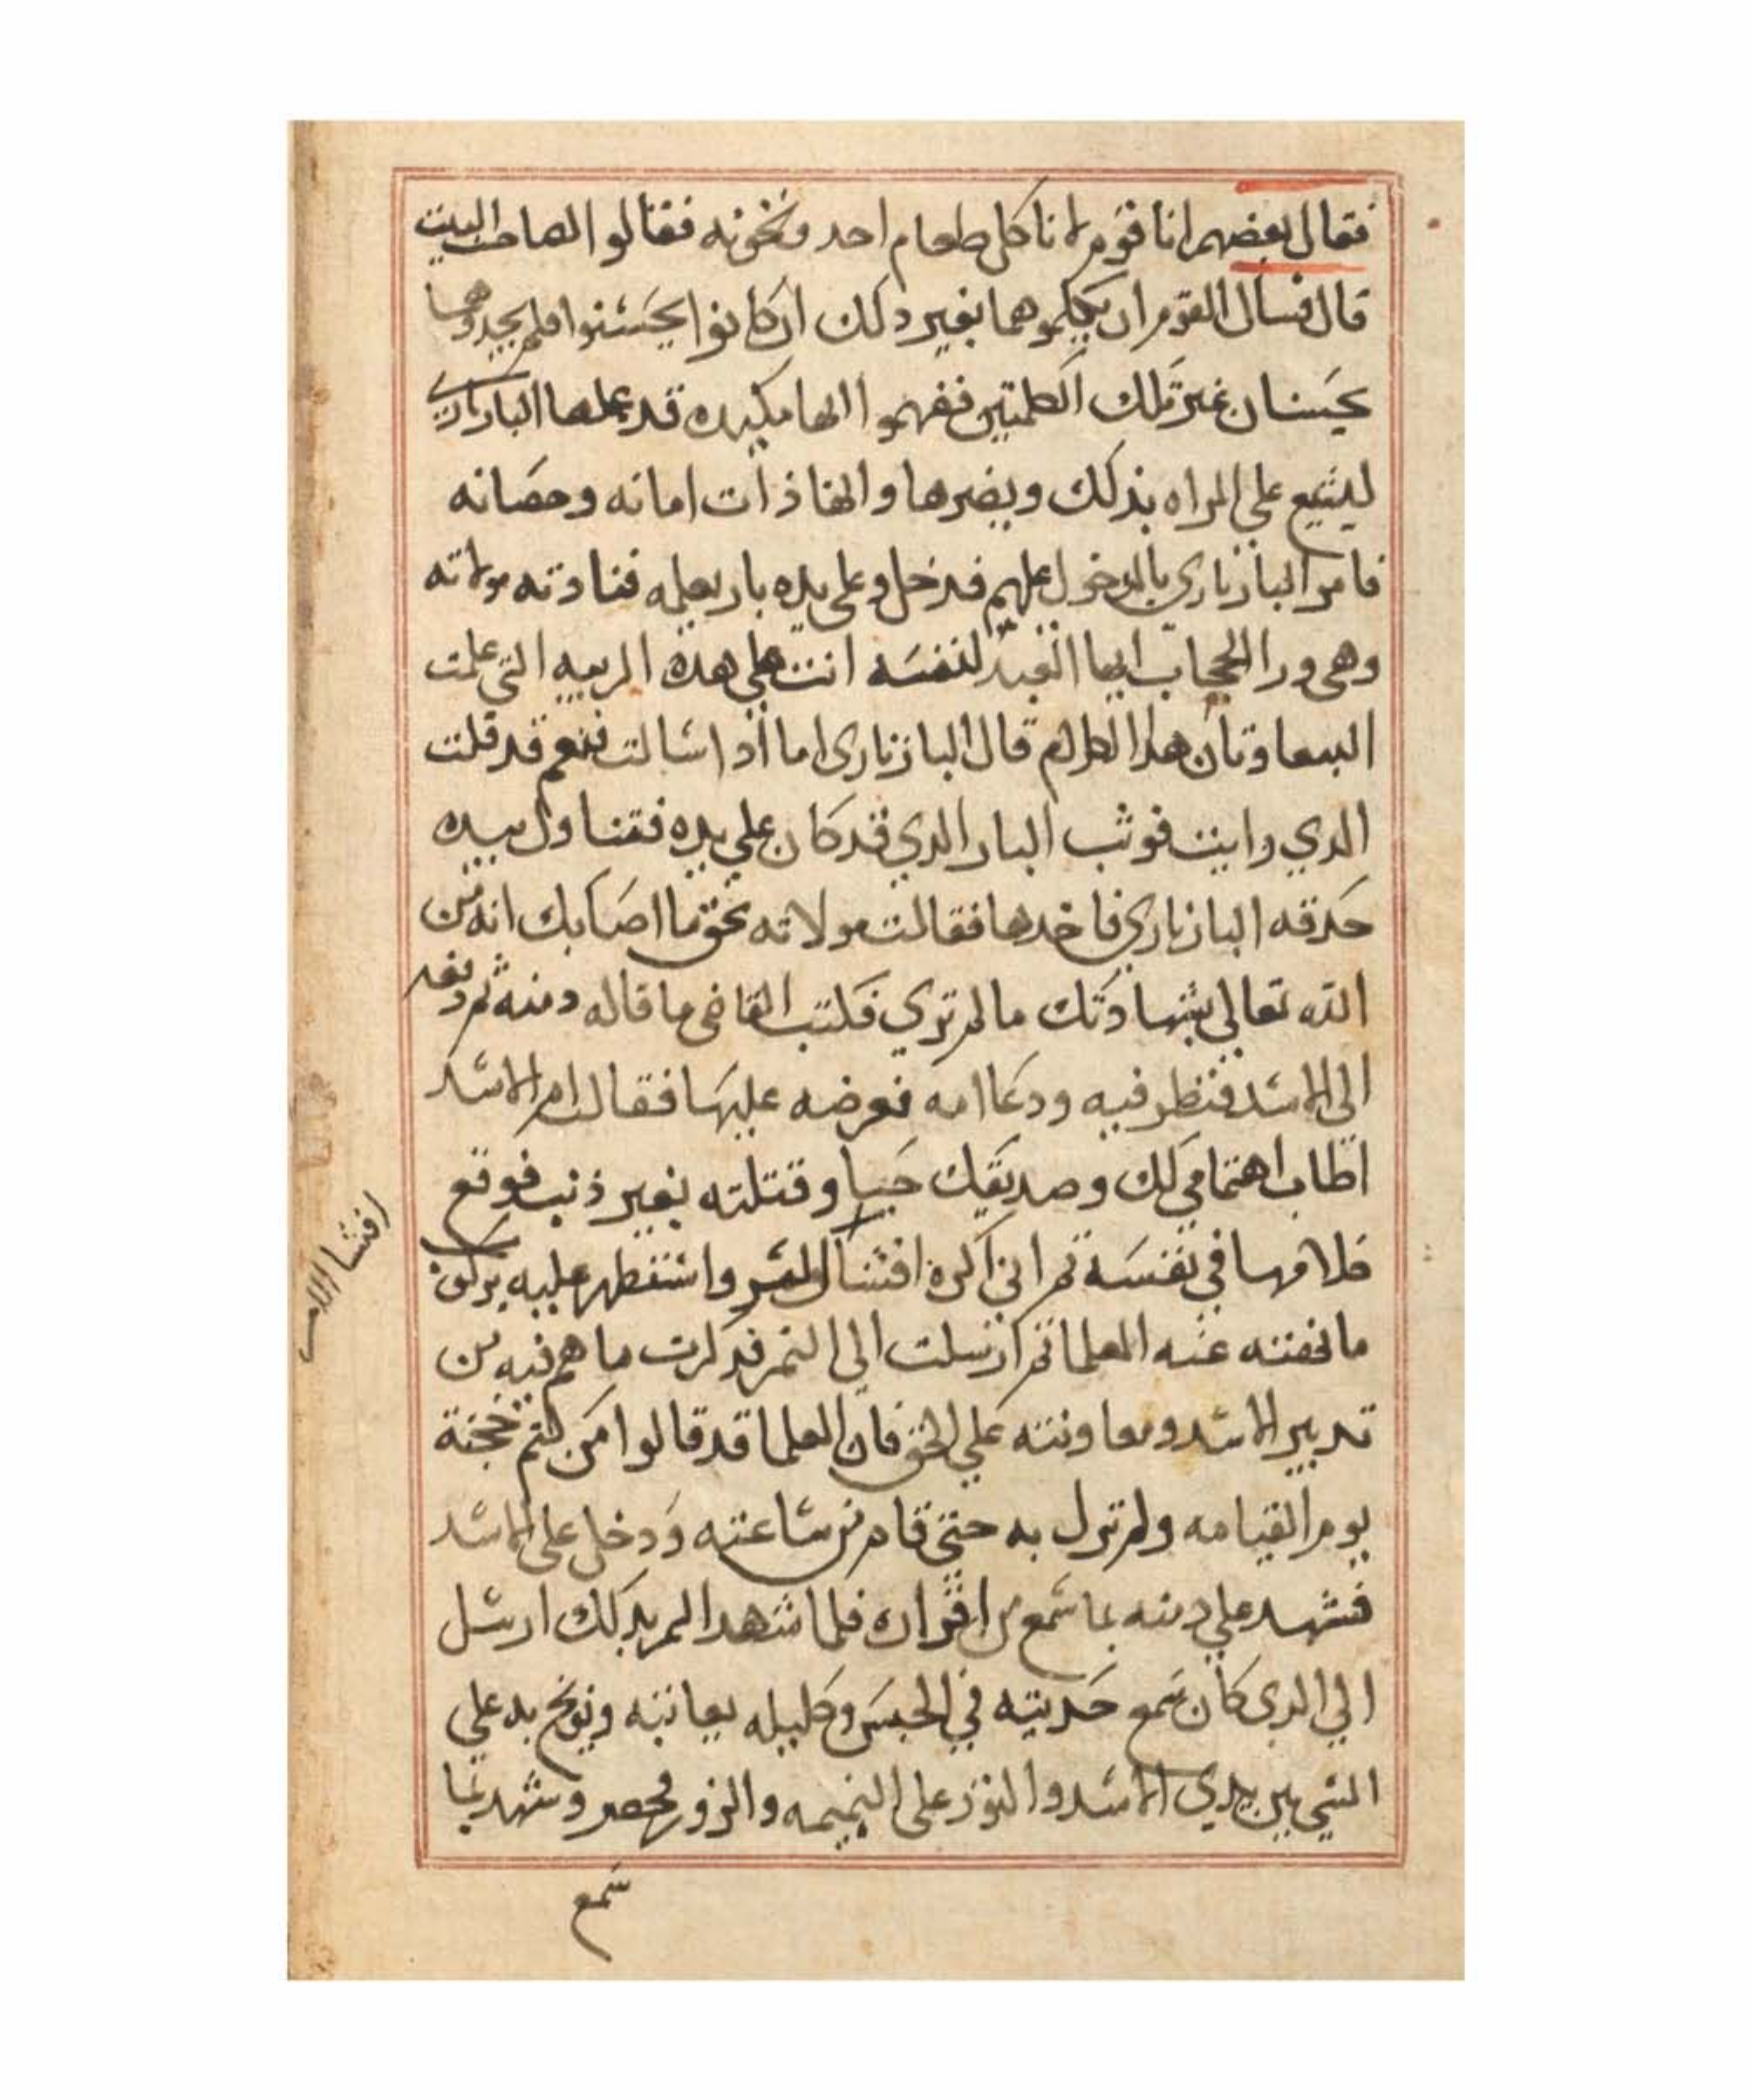 فقال بعضهم انا قوم لا ناكل طعام احد ونخونه فقالوا لصاحب البيت
قال فسال القوم ان يكلموهما بغير دلك ان كانوا يحسنوا فلم يجدوهما
يحسنان غير تلك الكلمتين ففهموا انها مكيده قد عملها البازيارى
ليشيع علي المراه بذلك ويضرها وانها ذات امانه وحصانه
فامر البازياري بالدخول عليهم فدخل وعلى يده باز يعلمه فنادته مولاته
وهى ورا الحجاب ايها العبد لنفسه انت علي هذه الريبه التى علمت
الببغاوتان هدا الكلام قال البازيارى اما اذا سالت فنعم قد قلت
الدي رايت فوثب الباز الدي قد كان علي يده فتناول بيده
حدقه البازياري فاخدها فقالت مولاته بحق ما اصابك انه من
الله تعالى بشهادتك ما لم تري فكتب القاضى ما قاله دمنه ثم رفعه
الى الاسد فنظر فيه ودعا امه فعرضه عليها فقالت ام الاسد
اطاب اهتمامي لك وصديقك حبيبا وقتلته بغير ذنب فوقع
كلامها في نفسه ثم اني اكره افشا السر واستظهر عليه بركوب
ما نهته عنه العلما ثم ارسلت الى النمر فدكرت ما هم فيه من
تدبير الاسد ومعاونته علي الحق فان العلما قد قالوا من كتم حجة
يوم القيامه ولم تزل به حتى قام من ساعته ودخل على الاسد
فشهد علي دمنه بما سمع من اقراره فلما شهد النمر بدلك ارسل
الي الدي كان سمع حديثه في الحبس وكليله يعاتبه ويوبخ به علي
السعي بين يدي الاسد والنور على النميمه والزور فحضر وشهد بما
سمع
افشا الاسر